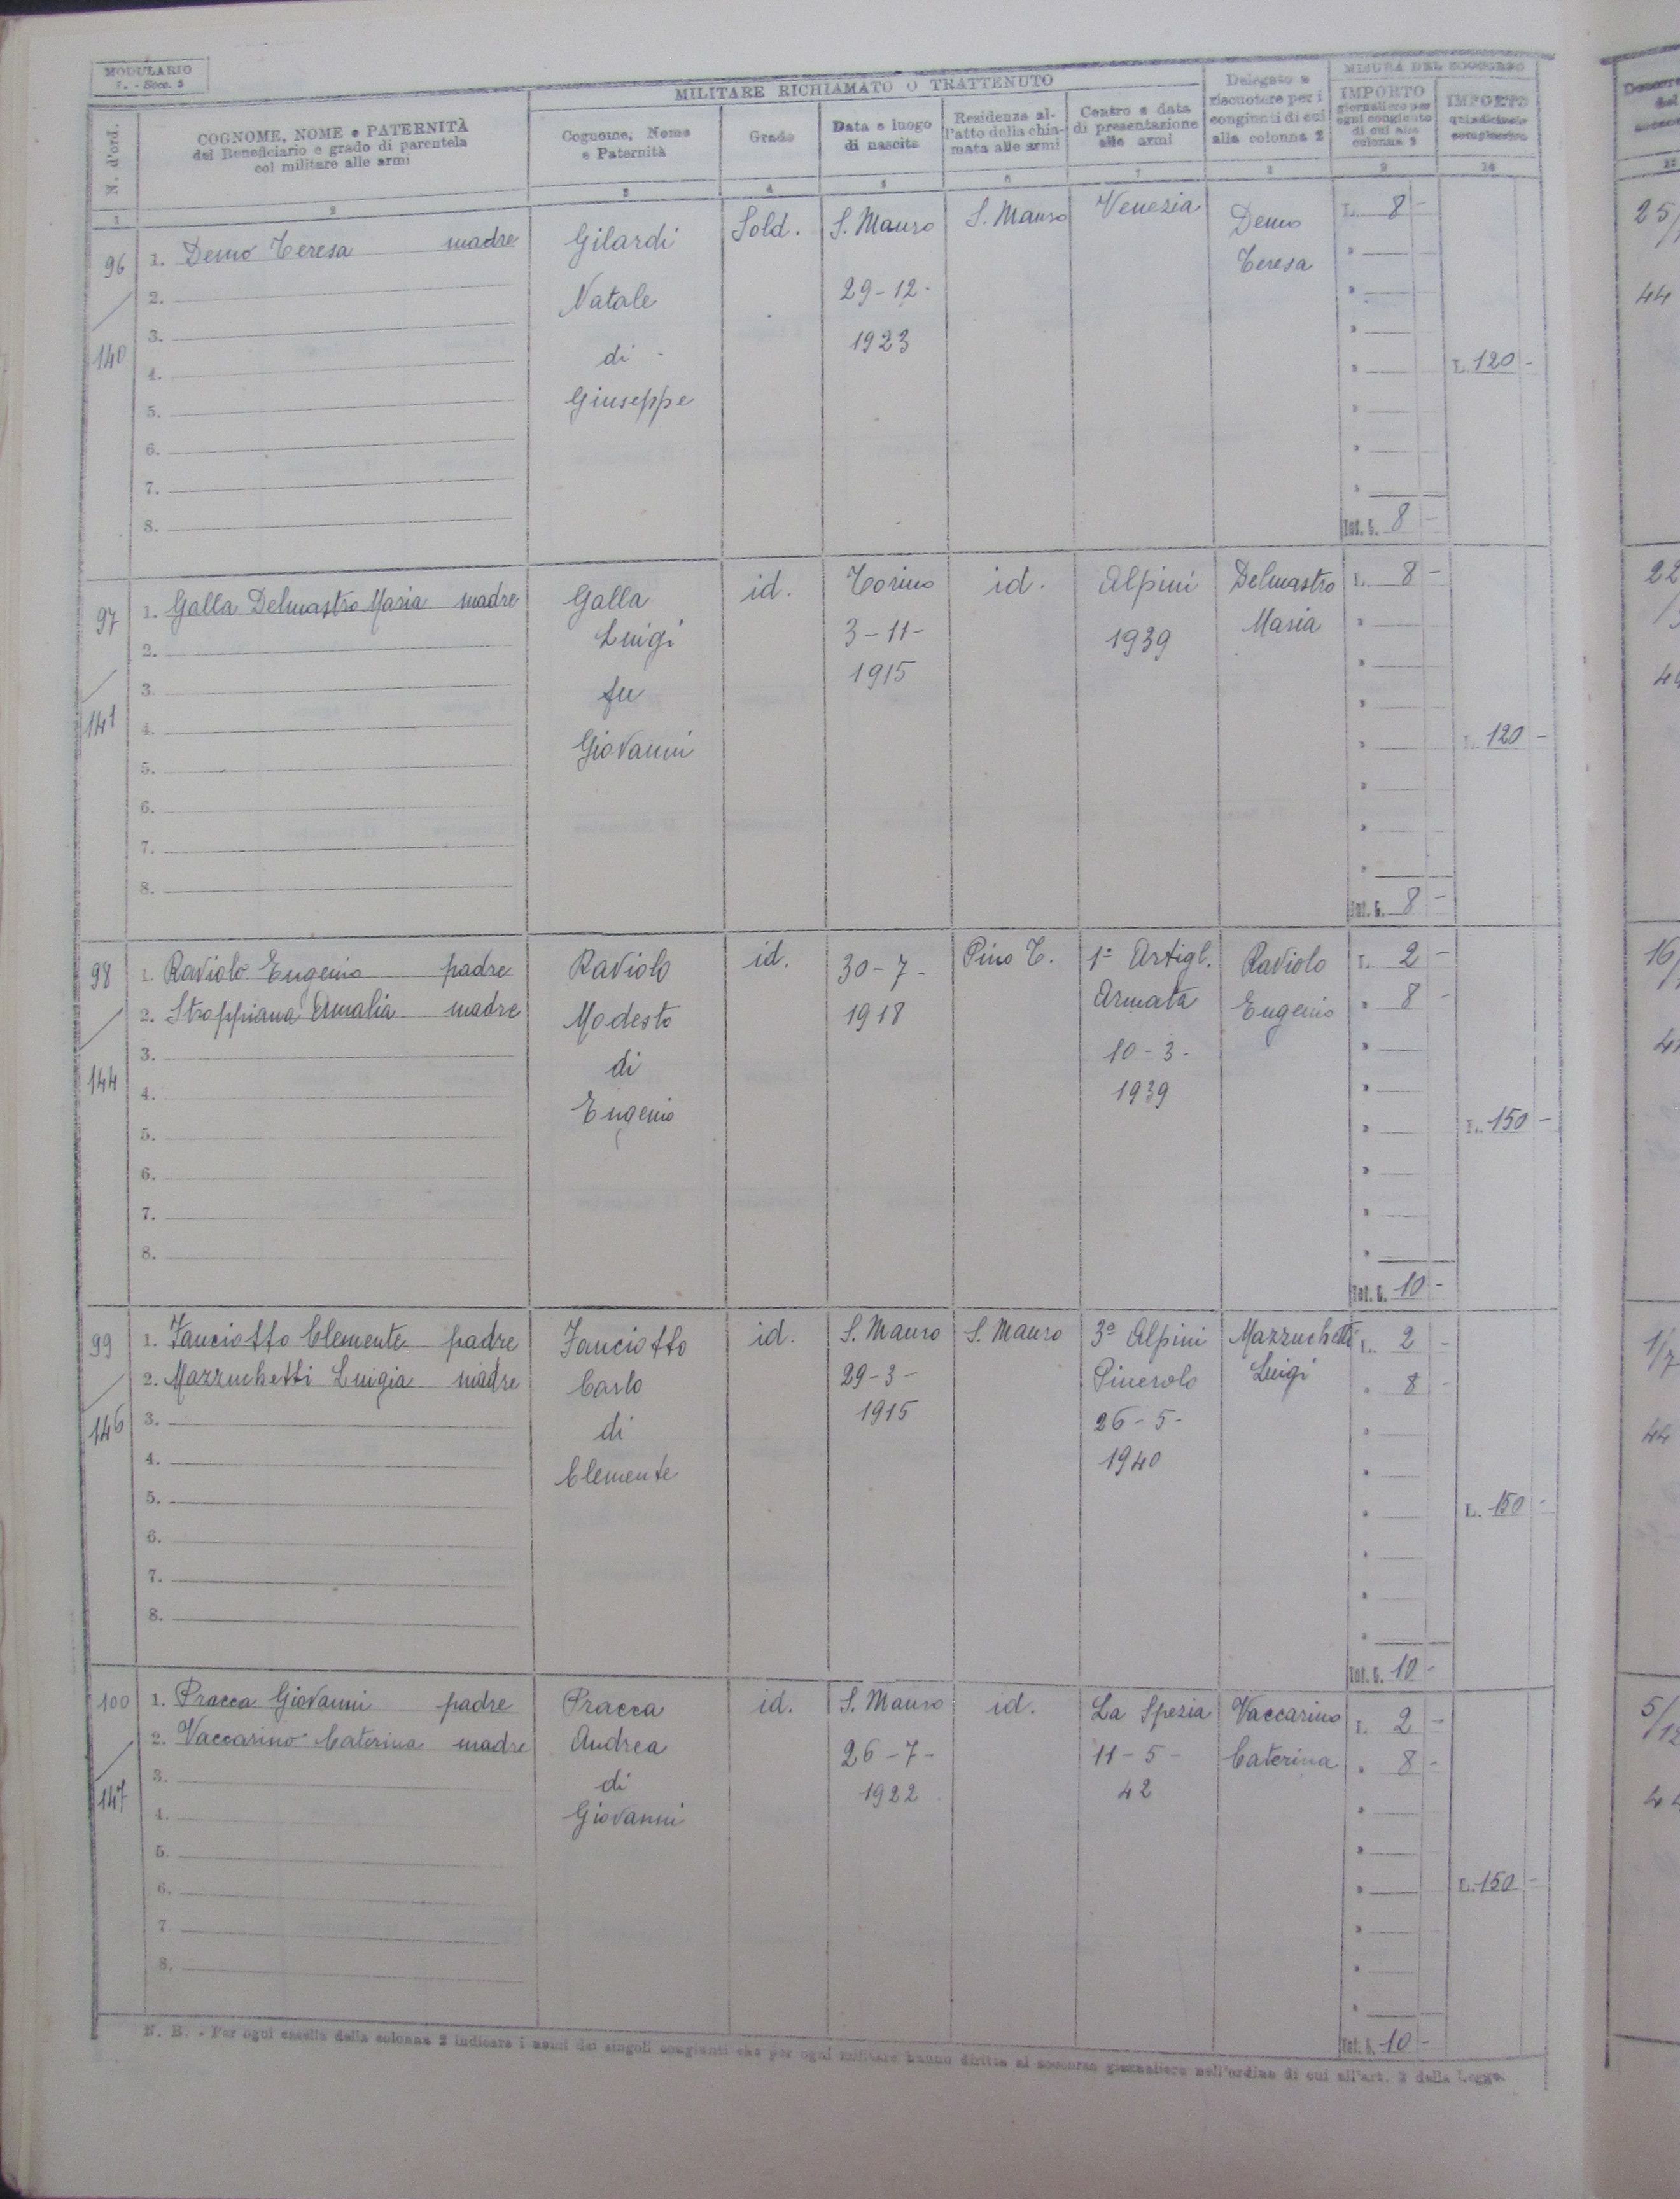 MODULARIO
I. - Socc. 5
N. d'ord.
COGNOME, NOME e PATERNITÀ
del Beneficiario e grado di parentela
col militare alle armi
MILITARE RICHIAMATO O TRATTENUTO
Cognome, Nome
e Paternità
Grado
Data e luogo
di nascita
Residenza al-
l'atto della chia-
mata alle armi
Centro e data
di presentazione
alle armi
Delegato a
riscuotere per i
congiunti di cui
alla colonna 2
MISURA DEL SOCCORSO
IMPORTO
giornaliero per
ogni congiunto
di cui alla
colonna 2
IMPORTO
quindicinale
complessivo
1 2 3 4 5 6 7 8 9 10
96
140
1. Demo Teresa madre
2.
3.
4.
5.
6.
7.
8.
Gilardi
Natale
di
Giuseppe
Sold.
S. Mauro
29-12-
1923
S. Mauro
Venezia
Demo
Teresa
L. 8 -
Tot. G. 8 -
L. 120 -
25/
44
97
141
1. Galla Delmastro Maria madre
2.
3.
4.
5.
6.
7.
8.
Galla
Luigi
fu
Giovanni
id.
Torino
3-11-
1915
id.
Alpini
1939
Delmastro
Maria
L. 8 -
Tot. G. 8 -
L. 120 -
22
98
144
1. Raviolo Eugenio padre
2. Stroppiana Amalia madre
3.
4.
5.
6.
7.
8.
Raviolo
Modesto
di
Eugenio
id.
30-7-
1918
Pino T.
1° Artigl.
Armata
10-3-
1939
Raviolo
Eugenio
L. 2 -
" 8 -
Tot. G. 10 -
L. 150 -
16/
99
146
1. Fanciotto Clemente padre
2. Mazzuchetti Luigia madre
3.
4.
5.
6.
7.
8.
Fanciotto
Carlo
di
Clemente
id.
S. Mauro
29-3-
1915
S. Mauro
3° Alpini
Pinerolo
26-5-
1940
Mazzuchetti
Luigi
L. 2 -
" 8 -
Tot. G. 10 -
L. 150 -
1/7
44
100
147
1. Pracca Giovanni padre
2. Vaccarino Caterina madre
3.
4.
5.
6.
7
8.
Pracca
Andrea
di
Giovanni
id.
S. Mauro
26-7-
1922
id.
La Spezia
11-5-
42
Vaccarino
Caterina
L. 2 -
" 8 -
Tot. G. 10 -
L. 150 -
5/12
N. B. - Per ogni casella della colonna 2 indicare i nomi dei singoli congiunti che per ogni militare hanno diritto al soccorso giornaliero nell'ordine di cui all'art. 2 della Legge.